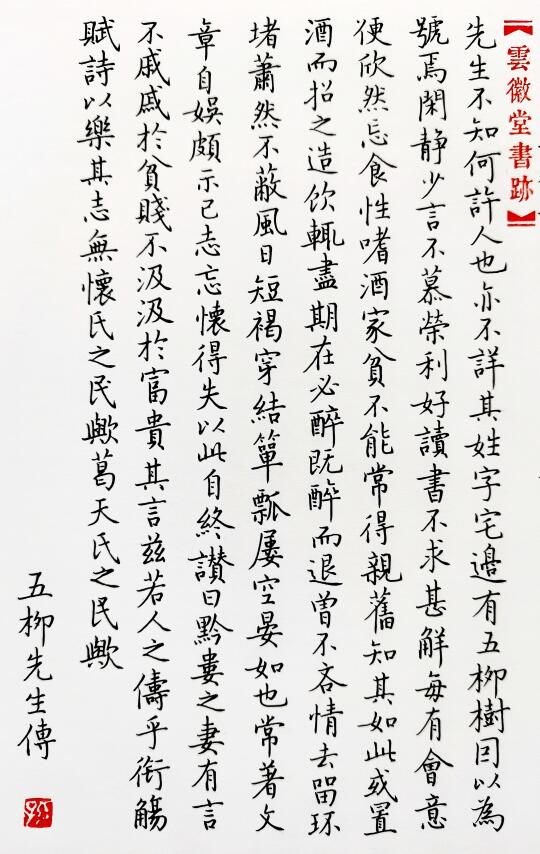 【雲徽堂書跡】
先生不知何許人也亦不詳其姓字宅邊有五柳樹因以為
號焉閑静少言不慕榮利好讀書不求甚解每有會意
便欣然忘食性嗜酒家貧不能常得親舊知其如此或置
酒而招之造饮輒盡期在必醉既醉而退曾不吝情去留环
堵蕭然不蔽風日短褐穿結簞瓢屢空晏如也常著文
章自娛頗示己志忘懷得失以此自終讃曰黔婁之妻有言
不戚戚於貧賤不汲汲於富貴其言兹若人之儔乎銜觴
賦詩以樂其志無懷氏之民歟葛天氏之民歟
五柳先生傳